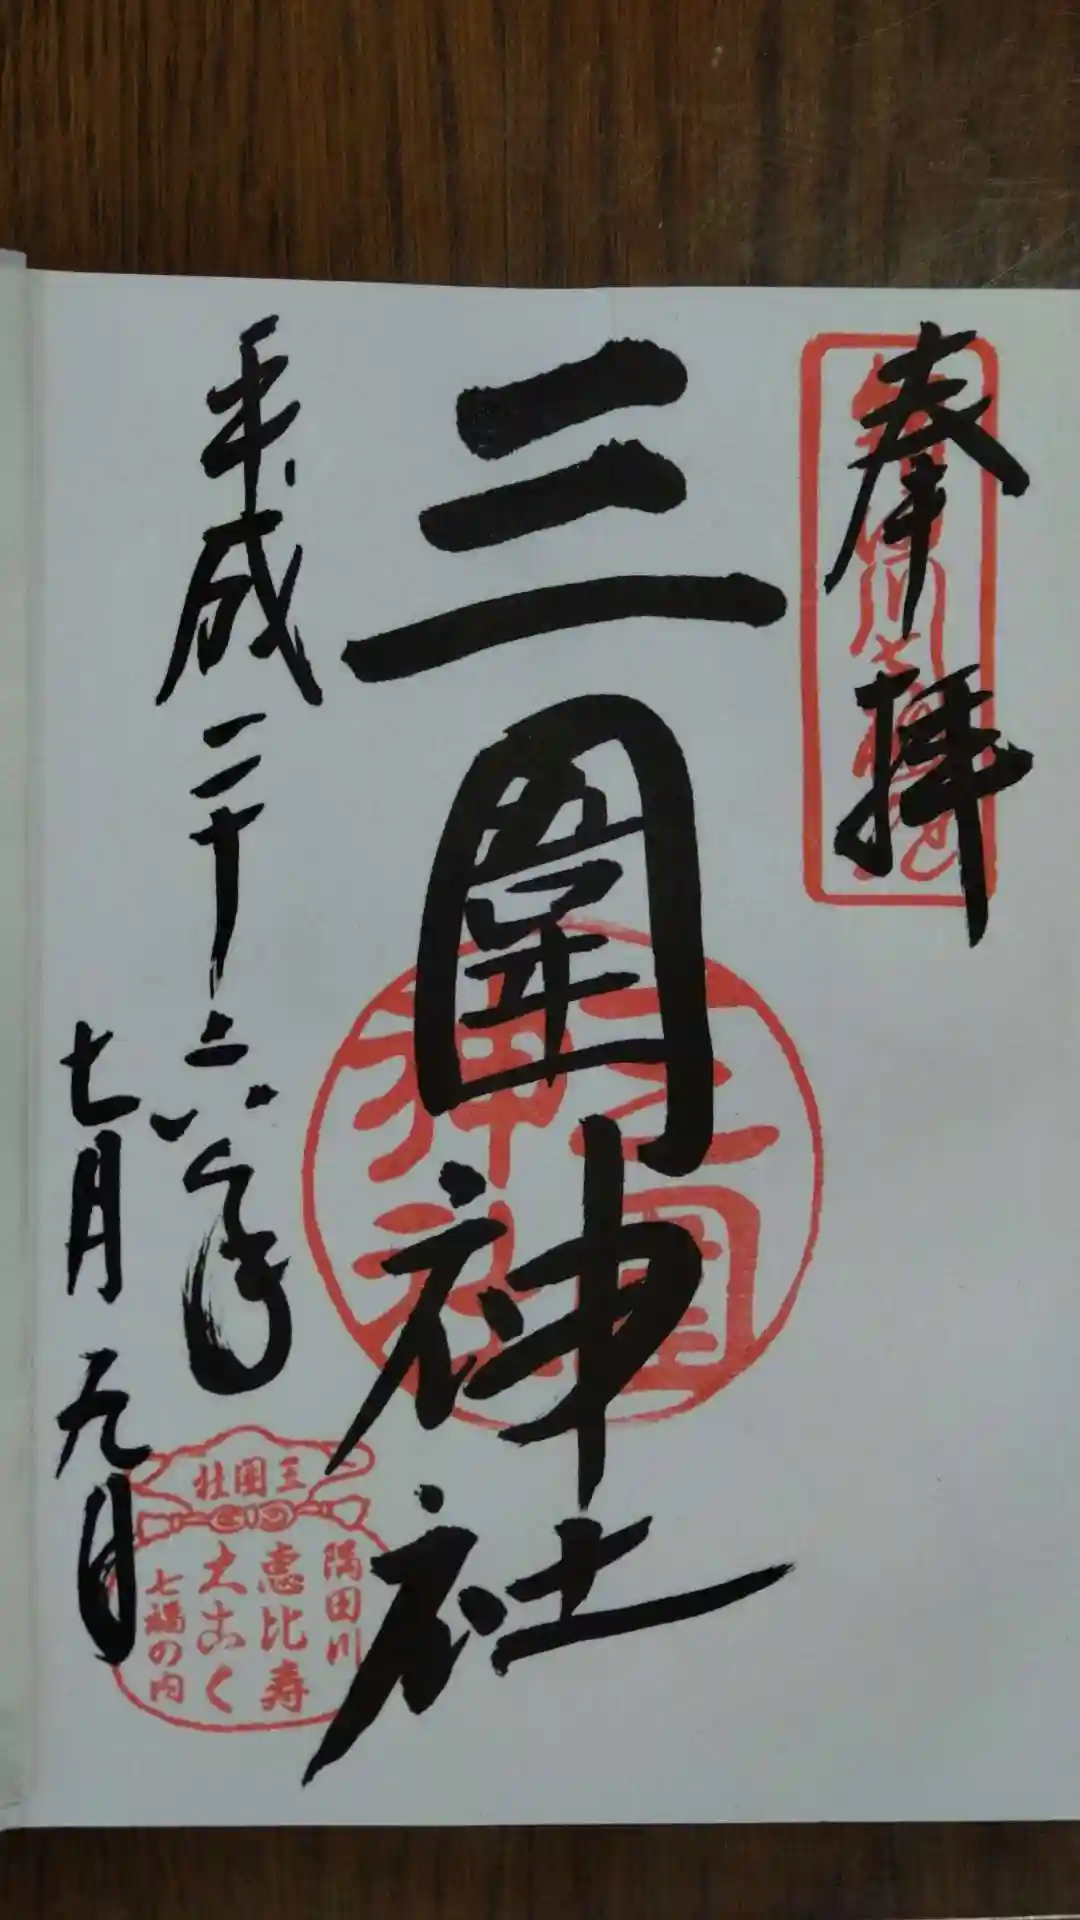 奉拝
三圍神社
三囲神社
平成二十六年
七月九日
三囲社
隅田川
恵比寿
大こく
七福の内